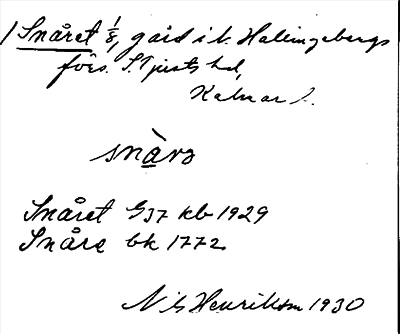 1 Snåret 1/8, gård i v. Hallingebergs
förs. S. Tjusts hd,
Kalmar l.
snàrə
Snåret G37 kb 1929
Snåre bk 1772
Nils Henrikson 1930